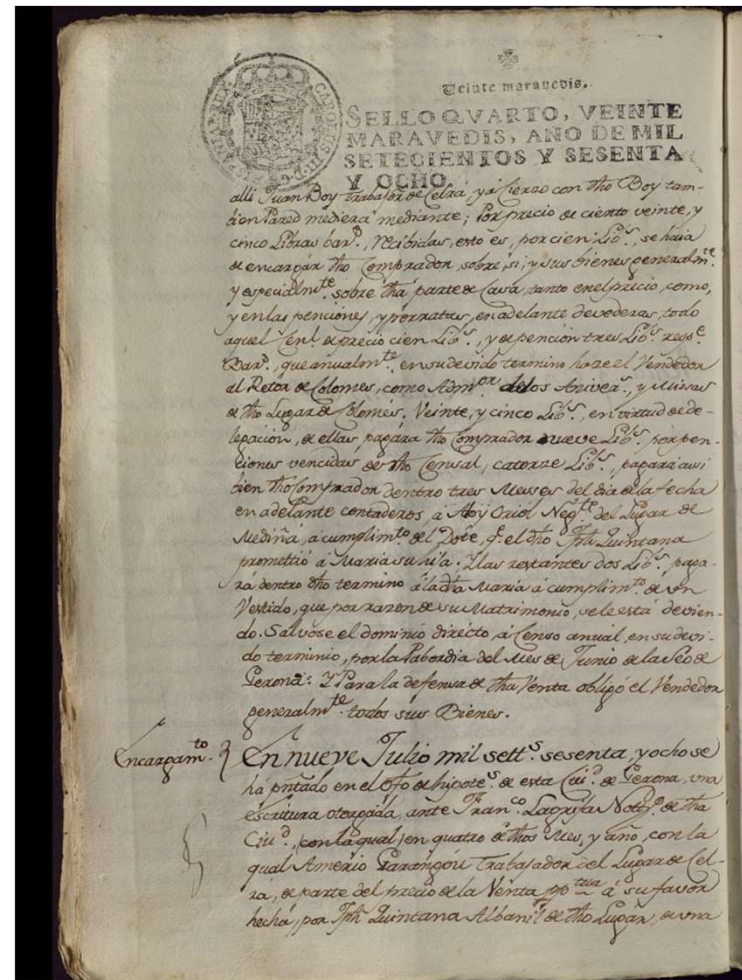 CAROLUS III D G HISPANIAR REX
Veinte maravedis.
SELLO QVARTO, VEINTE
MARAVEDIS, AÑO DE MIL
SETECIENTOS Y SESENTA
Y OCHO
alli Juan Boy Trabajor de Celrà, y à Cierzo con dho Boy tam-
bien Pared mediera mediante; Por precio de ciento veinte, y
cinco Libras bar.s, recibidas, esto es, por cien Lib.s, se haia
de encargar dho Comprador, sobre, si, y sus bienes generalm.te
y especialm.te sobre dha parte de Casa, tanto en el precio, como,
y en las penciones, y porratas, en adelante devederas, todo
aquel Cen.l de precio cien Lib.s, y de pención tres Lib.s
Bar.s, que anualm.te en su devido termino haze el Vendedor
al Retor de Colomes, como Adm.or delos Aniver.s, y Missas
de dho Lugar de Colomes. Veinte, y cinco Lib.s, en virtud de de-
legación, de ellas, pagára dho Comprador nueve Lib.s por pen-
ciones vencidas de dho Censal, catorze Lib.s, pagará assi
bien dho Comprador dentro tres Messes del dia de la fecha
en adelante contaderos, á Oriol del Lugar de
Mediñá, a cumplim.to del Dote, q.e el dho Jph Quintana
promettió á Maria su hija. Y las restantes dos Lib.s paga-
rá dentro dho termino á la dha Maria á cumplim.to de un
Vestido, que por razon de su Matrimonio, se le está devien-
do. Salvose el dominio directo, á Censo anual, en su devi-
do termino, por la Pabordia del Mes de Junio de la Seo de
Gerona: Y Para la defensa de dha Venta obligó el Vendedor
generalm.te todos sus Bienes.
Encargam.to En nueve Julio mil sett.s sesenta, y ocho se
há pñtado en el Ofo de hipote.s de esta Ciu.d de Gerona, una
escritura otorgada, ante Fran.co Lagrifa Not.o de dha
Ciu.d, (con la qual) en quatro de dhos Mes, y año, con la
qual Amerio Parangou Trabajador del Lugar de Cel-
rá, de parte del precio de la Venta á su favor
hecha, por Jph Quintana Albanil de dho Lugar, de una